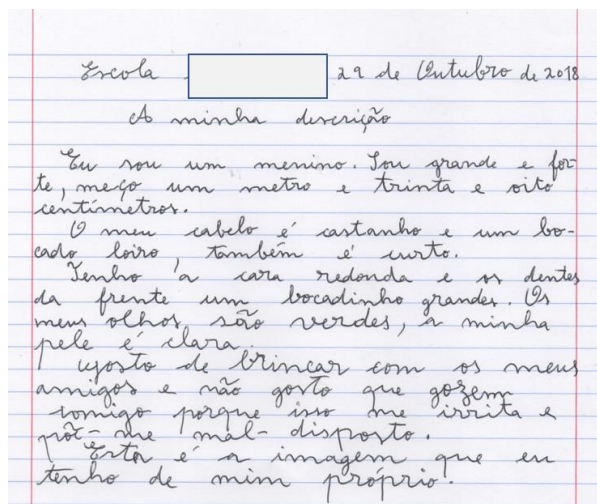 Escola 29 de Outubro de 2018
A minha descrição
Eu sou um menino. Sou grande e for-
te, meço um metro e trinta e oito
centímetros.
O meu cabelo é castanho e um bo-
cado loiro, também é curto.
Tenho a cara redonda e os dentes
da frente um bocadinho grandes. Os
meus olhos são verdes, a minha
pele é clara.
Gosto de brincar com os meus
amigos e não gosto que gozem
comigo porque isso me irrita e
põe-me mal-disposto.
Esta é a imagem que eu
tenho de mim próprio.